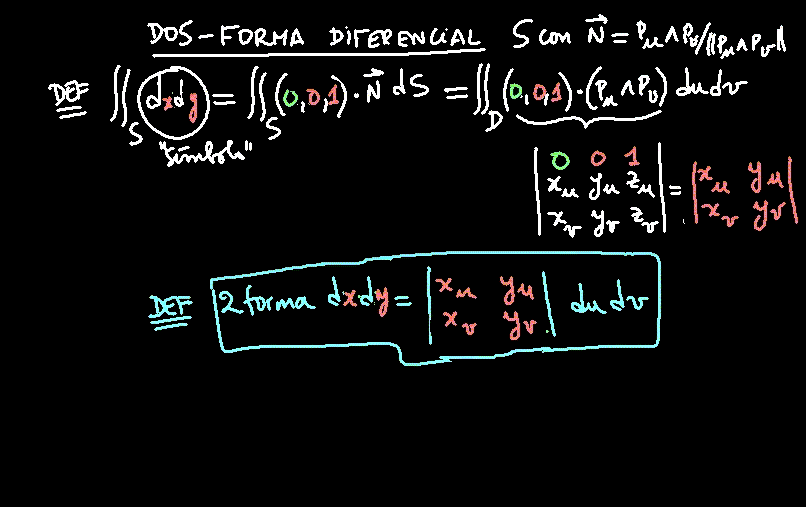 DOS-FORMA DIFERENCIAL S con N⃗ = Pu ∧ Pv/‖Pu ∧ Pv‖
DEF ∬_S dxdy = ∬_S (0,0,1)·N⃗ dS = ∬_D (0,0,1)·(Pu ∧ Pv) dudv
"símbolo"
|0 0 1|
|xu yu zu| = |xu yu|
|xv yv zv| |xv yv|
DEF 2 forma dxdy = |xu yu| du dv
|xv yv|